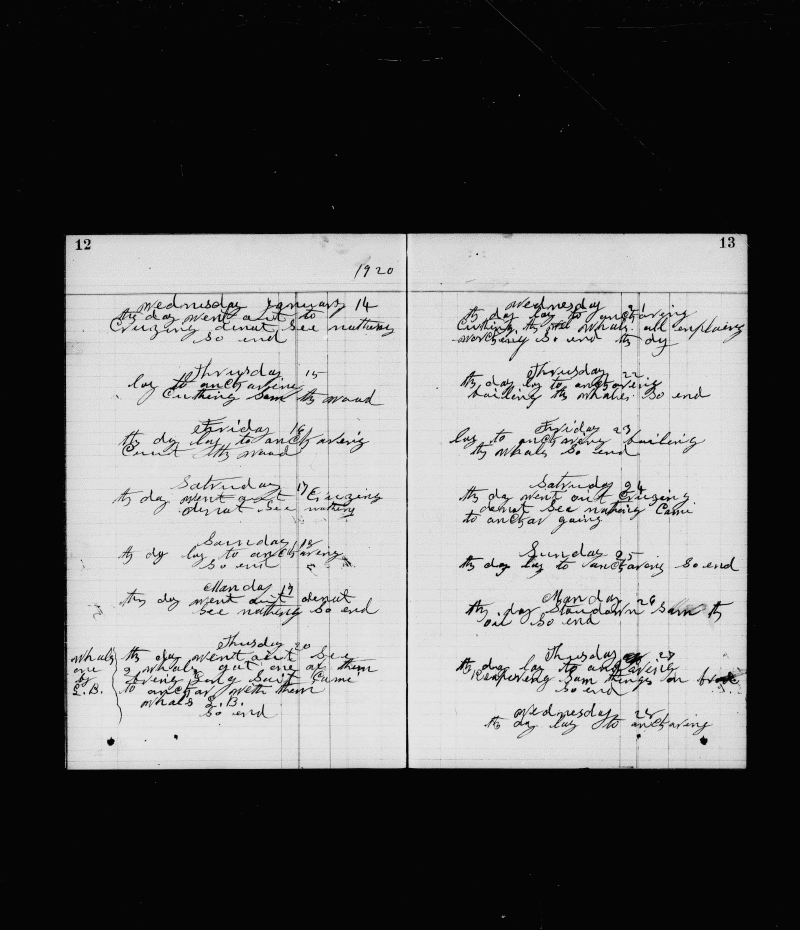 12
1920
Wednesday January 14
ths day went aut to
Cruizing denat See nathing
So end
Thrusday 15
lay to anCharing
Cutting Sam ths waad
Friday 16
ths day lay to anCharing
ths waad
Saturday 17
ths day went aut Cruizing
denat See nathing
Sunday 18
ths dy lay to anCharing
So end
Manday 19
ths day went aut denat
See nathing So end
Thusday 20
ths day went aut See
2 whals gat one af them
Came
to anChar with them
whals L.B.
So end
whals
one
by
L.B.
13
Wednesday 21
ths day lay to anCharing
Cutting ths whals all
warking So end ths dy
Thrusday 22
ths day lay to anCharing
bailing ths whales So end
Friday 23
lay to anCharing bailing
ths whals So end
Saturday 24
ths day went out Cruizing
denat See nathing Came
to anChar going
Sunday 25
ths day lay to anCharing So end
Manday 26
ths day Standawn Sam ths
ail So end
Thusday 27
ths day lay to anCharing
Sam things on
So end
Wednesday 28
ths day lay to anCharing